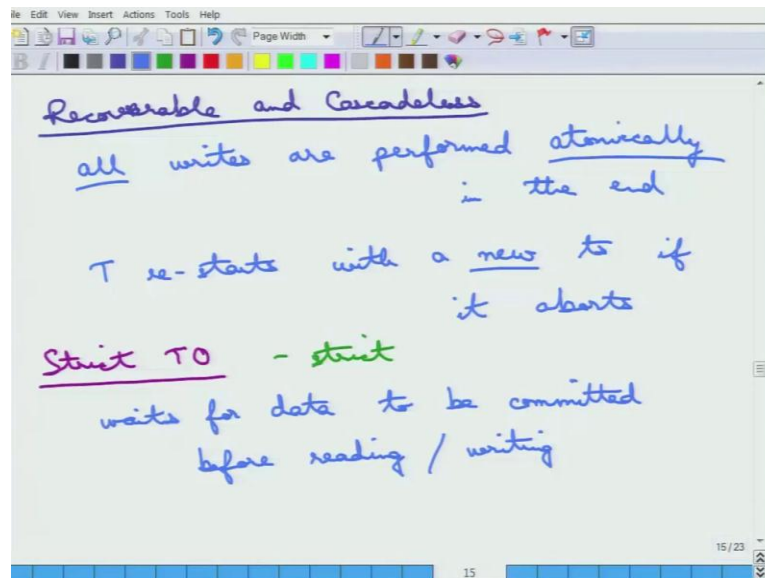 ile Edit View Insert Actions Tools Help
Page Width
Recoverable and Cascadeless
all writes are performed atomically
in the end
T re-starts with a new ts if
it aborts
Strict TO - strict
waits for data to be committed
before reading / writing
15/23
15